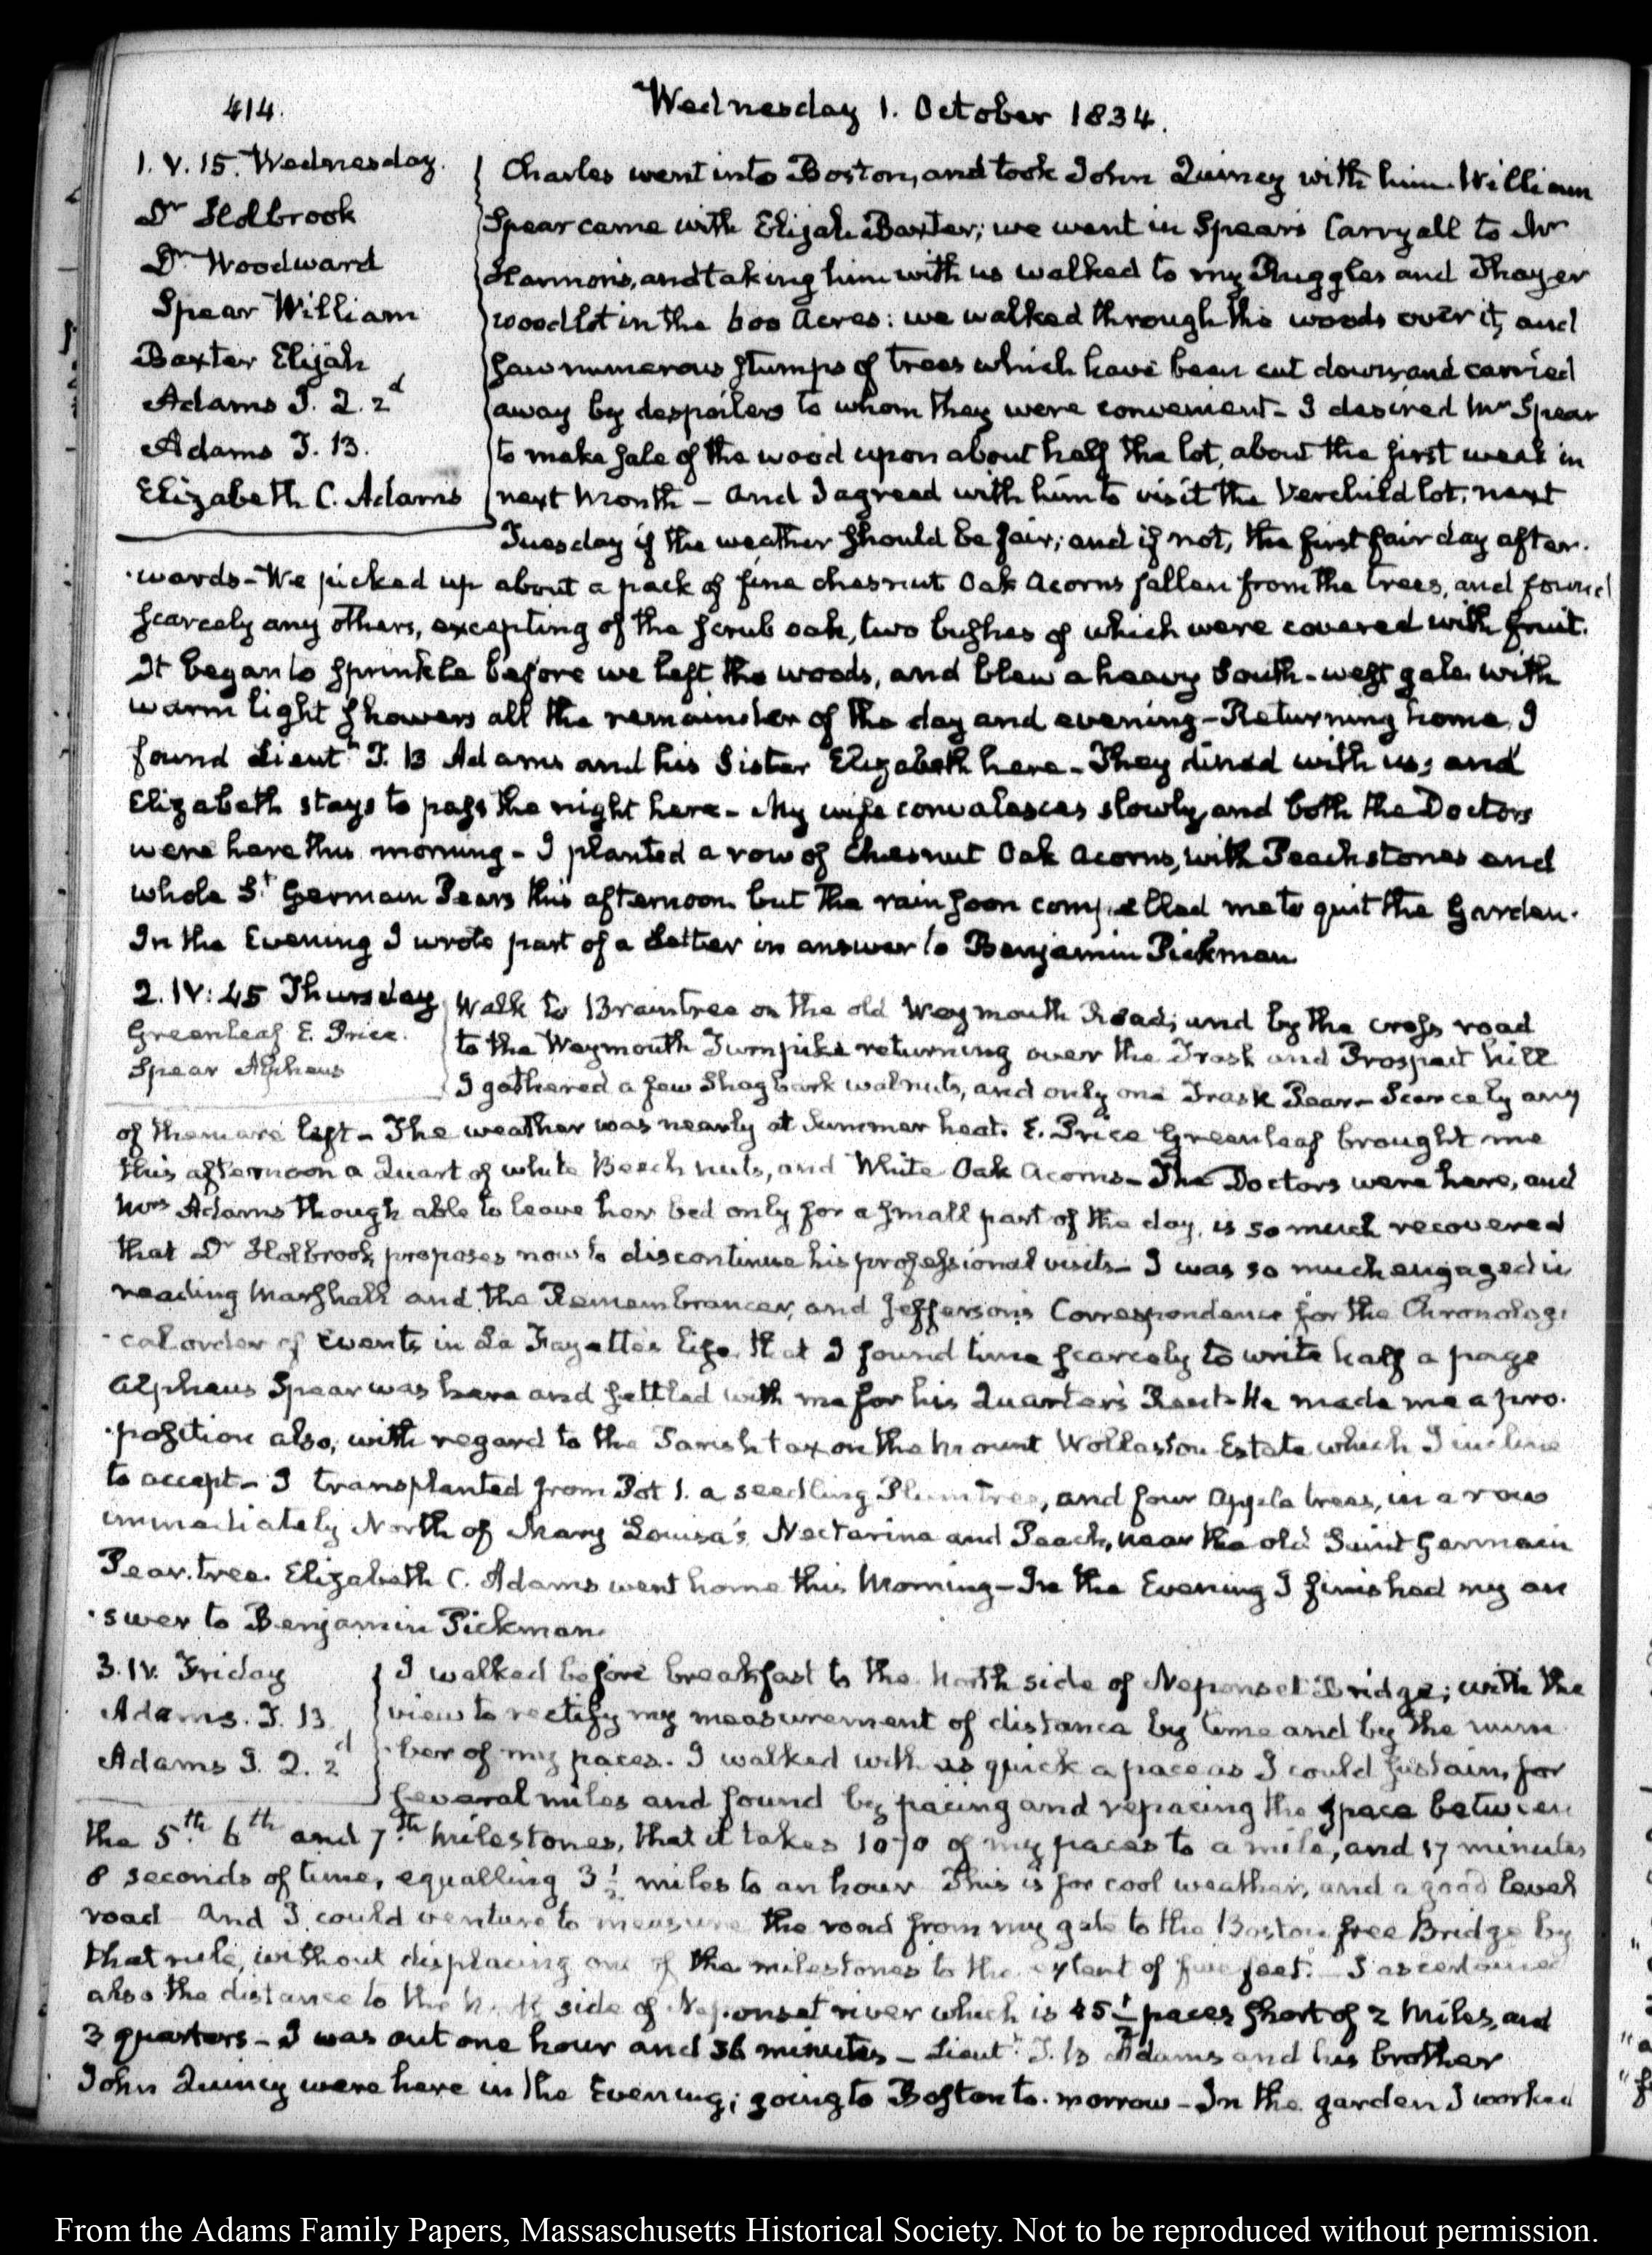 414.
Wednesday 1. October 1834.
1. V. 15. Wednesday.
Dr Holbrook
Dr Woodward
Spear William
Baxter Elijah
Adams J. Q. 2d
Adams T. B.
Elizabeth C. Adams
Charles went into Boston, and took John Quincy with him. William
Spear came with Elijah Baxter; we went in Spear's Carryall to Mr
Harmon's, and taking him with us walked to my Ruggles and Thayer
woodlot in the 600 Acres: we walked through the woods over it, and
saw numerous stumps of trees which have been cut down, and carried
away by despoilers to whom they were convenient - I desired Mr Spear
to make sale of the wood upon about half the lot, about the first week in
next Month - And I agreed with him to visit the Verchild lot, next
Tuesday if the weather should be fair; and if not, the first fair day after-
-wards - We picked up about a peck of fine chesnut Oak Acorns fallen from the trees, and found
scarcely any others, excepting of the scrub oak, two bushes of which were covered with fruit.
It began to sprinkle before we left the woods, and blew a heavy South-west gale with
warm light showers all the remainder of the day and evening - Returning home I
found Lieutt T. B Adams and his Sister Elizabeth here - They dined with us; and
Elizabeth stays to pass the night here - My wife convalesces slowly, and both the Doctors
were here this morning - I planted a row of Chesnut Oak Acorns, with Peachstones and
whole St Germain Pears this afternoon but the rain soon compelled me to quit the Garden.
In the Evening I wrote part of a Letter in answer to Benjamin Pickman
2. IV: 45 Thursday
Greenleaf E. Price.
Spear Alpheus
Walk to Braintree on the old Weymouth Road; and by the cross road
to the Weymouth Turnpike returning over the Trask and Prospect hill
I gathered a few Shagbark walnuts, and only one Trask Pear - Scarcely any
of them are left - The weather was nearly at Summer heat. E. Price Greenleaf brought me
this afternoon a Quart of white Beech nuts, and White Oak Acorns - The Doctors were here, and
Mrs Adams though able to leave her bed only for a small part of the day, is so much recovered
that Dr Holbrook proposes now to discontinue his professional visits - I was so much engaged in
reading Marshall and the Remembrancer, and Jefferson's Correspondence for the Chronologi-
-cal order of Events in La Fayette's life, that I found time scarcely to write half a page
Alpheus Spear was here and settled with me for his Quarter's Rent - He made me a pro-
-position also, with regard to the Parish tax on the Mount Wollaston Estate which I incline
to accept - I transplanted from Pot 1. a seedling Plum tree, and four Apple trees, in a row
immediately North of Mary Louisa's Nectarine and Peach, near the old Saint Germain
Pear-tree. Elizabeth C. Adams went home this Morning - In the Evening I finished my an
-swer to Benjamin Pickman.
3. IV. Friday
Adams. T. B.
Adams J. Q. 2d
I walked before breakfast to the North side of Neponset Bridge; with the
view to rectify my measurement of distance by time and by the num
-ber of my paces. I walked with as quick a pace as I could sustain, for
several miles and found by pacing and repacing the space between
the 5th 6th and 7th Milestones, that it takes 1070 of my paces to a mile, and 17 minutes
8 seconds of time, equalling 3 1/2 miles to an hour This is for cool weather, and a good level
road And I could venture to measure the road from my gate to the Boston free Bridge by
that rule, without displacing one of the milestones to the extent of five feet. I ascertained
also the distance to the North side of Neponset river which is 45 1/2 paces short of 2 Miles, and
3 quarters - I was out one hour and 36 minutes - Lieutt T. B Adams and his brother
John Quincy were here in the Evening; going to Boston to-morrow - In the garden I worked
From the Adams Family Papers, Massaschusetts Historical Society. Not to be reproduced without permission.